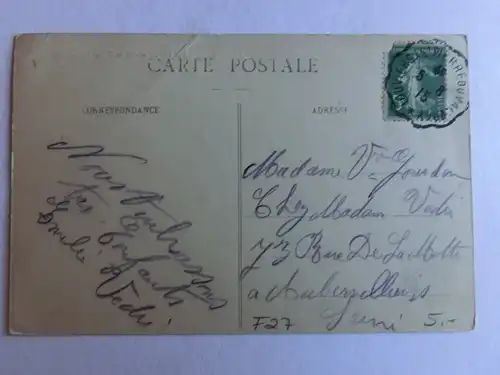 CARTE POSTALE
CORRESPONDANCE
ADRESSE
Nous t'embrassons
tes Enfants
Emile Vedie
Madame Vve Jourdan
Chez Madam Vedie
73 Rue De La Motte
a Aubervilliers
Seine
F27
5.-